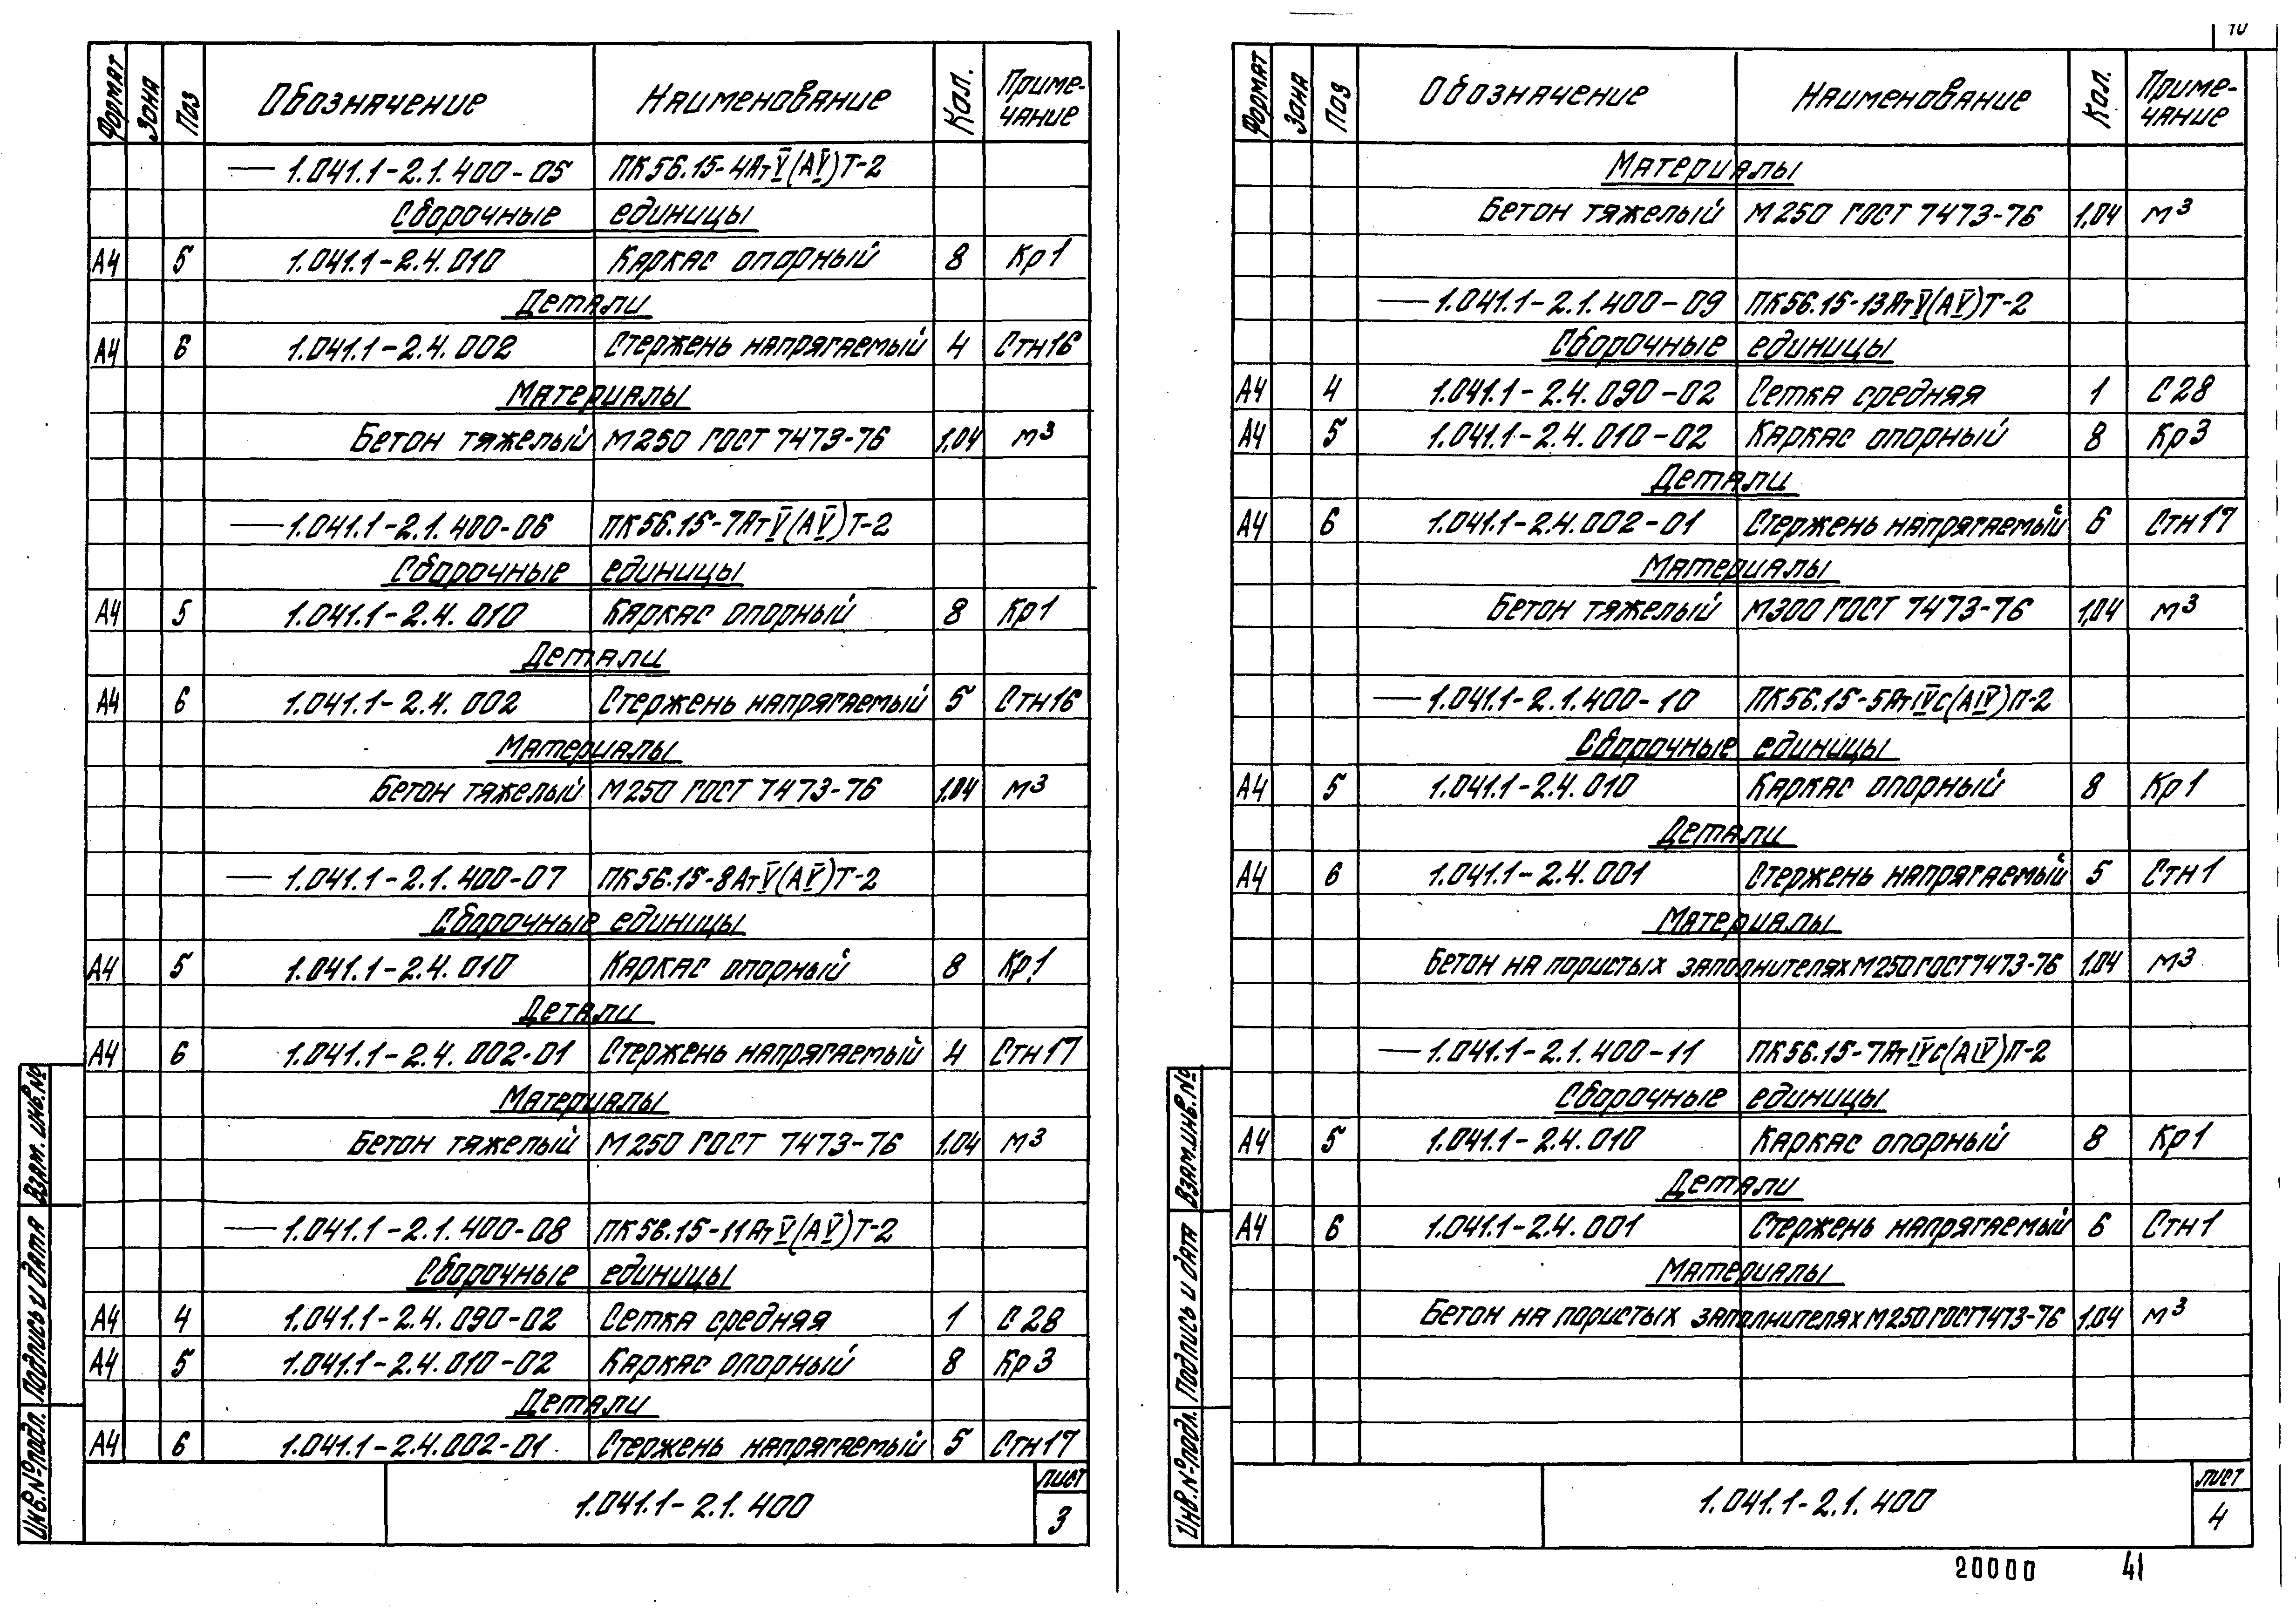 Формат Зона Поз Обозначение Наименование Кол. Приме-
чание
— 1.041.1-2.1.400-05 ПК56.15-4АтV(АV)Т-2
Сборочные единицы
А4 5 1.041.1-2.4.010 Каркас опорный 8 Кр1
Детали
А4 6 1.041.1-2.4.002 Стержень напрягаемый 4 Стн16
Материалы
Бетон тяжелый М250 ГОСТ 7473-76 1.04 м³
— 1.041.1-2.1.400-06 ПК56.15-7АтV(АV)Т-2
Сборочные единицы
А4 5 1.041.1-2.4.010 Каркас опорный 8 Кр1
Детали
А4 6 1.041.1-2.4.002 Стержень напрягаемый 5 Стн16
Материалы
Бетон тяжелый М250 ГОСТ 7473-76 1.04 м³
— 1.041.1-2.1.400-07 ПК56.15-8АтV(АV)Т-2
Сборочные единицы
А4 5 1.041.1-2.4.010 Каркас опорный 8 Кр1
Детали
А4 6 1.041.1-2.4.002-01 Стержень напрягаемый 4 Стн17
Материалы
Бетон тяжелый М250 ГОСТ 7473-76 1.04 м³
— 1.041.1-2.1.400-08 ПК56.15-11АтV(АV)Т-2
Сборочные единицы
А4 4 1.041.1-2.4.090-02 Сетка средняя 1 С28
А4 5 1.041.1-2.4.010-02 Каркас опорный 8 Кр3
Детали
А4 6 1.041.1-2.4.002-01 Стержень напрягаемый 5 Стн17
1.041.1-2.1.400
Лист
3
Инв.№подл. Подпись и дата Взам.инв.№
10
Формат Зона Поз Обозначение Наименование Кол. Приме-
чание
Материалы
Бетон тяжелый М250 ГОСТ 7473-76 1,04 м³
— 1.041.1-2.1.400-09 ПК56.15-13АтV(АV)Т-2
Сборочные единицы
А4 4 1.041.1-2.4.090-02 Сетка средняя 1 С28
А4 5 1.041.1-2.4.010-02 Каркас опорный 8 Кр3
Детали
А4 6 1.041.1-2.4.002-01 Стержень напрягаемый 6 Стн17
Материалы
Бетон тяжелый М300 ГОСТ 7473-76 1,04 м³
— 1.041.1-2.1.400-10 ПК56.15-5АтIVС(АIV)П-2
Сборочные единицы
А4 5 1.041.1-2.4.010 Каркас опорный 8 Кр1
Детали
А4 6 1.041.1-2.4.001 Стержень напрягаемый 5 Стн1
Материалы
Бетон на пористых заполнителях М250 ГОСТ 7473-76 1,04 м³
— 1.041.1-2.1.400-11 ПК56.15-7АтIVС(АIV)П-2
Сборочные единицы
А4 5 1.041.1-2.4.010 Каркас опорный 8 Кр1
Детали
А4 6 1.041.1-2.4.001 Стержень напрягаемый 6 Стн1
Материалы
Бетон на пористых заполнителях М250 ГОСТ 7473-76 1,04 м³
1.041.1-2.1.400
Лист
4
Инв.№подл. Подпись и дата Взам.инв.№
20000 41